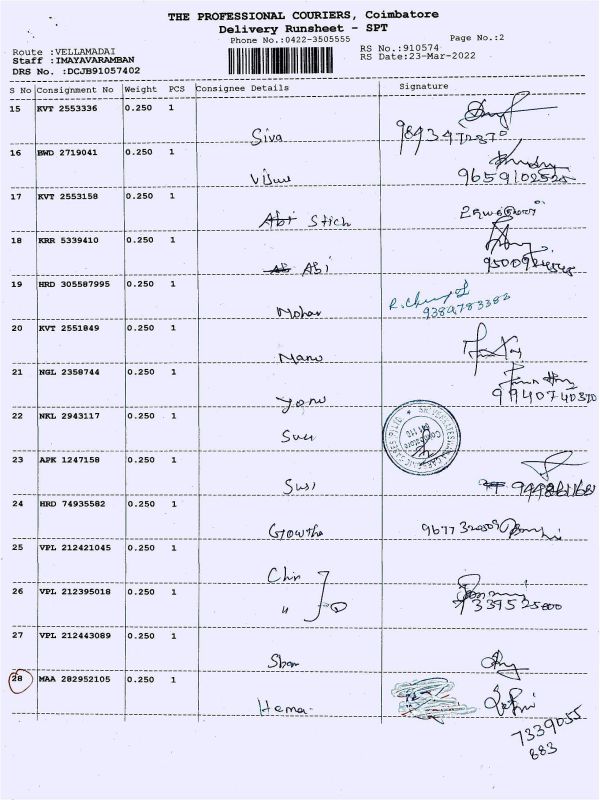 THE PROFESSIONAL COURIERS, Coimbatore
Delivery Runsheet - SPT
Phone No.:0422-3505555 Page No.:2
Route :VELLAMADAI RS No.:910574
Staff :IMAYAVARAMBAN RS Date:23-Mar-2022
DRS No. :DCJB91057402
S No Consignment No Weight PCS Consignee Details Signature
15 KVT 2553336 0.250 1
Siva
16 BWD 2719041 0.250 1
9659102525
17 KVT 2553158 0.250 1
Abi Stich
18 KRR 5339410 0.250 1
Abi
19 HRD 305587995 0.250 1
Mohan 9389783383
20 KVT 2551849 0.250 1
Manu
21 NGL 2358744 0.250 1
9940740370
22 NKL 2943117 0.250 1
23 APK 1247158 0.250 1
Susi
24 HRD 74935582 0.250 1
Gowtha
25 VPL 212421045 0.250 1
Chin
26 VPL 212395018 0.250 1
"
7339525000
27 VPL 212443089 0.250 1
28 MAA 282952105 0.250 1
Hema
7339055
883